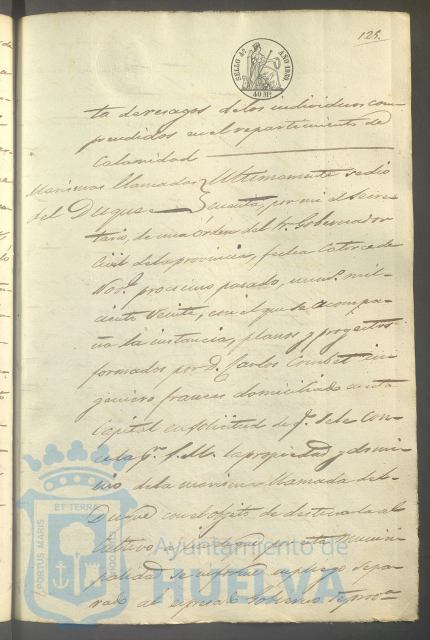 125.
SELLO 4º AÑO 1859.
40 Ms
ta de resagos de los individuos com-
prendidos en el repartimiento de
Calamidad
Marismas llamadas
del Duque
Ultimamente se dio
cuenta, por mi el Secre
tario, de una órden del Sr. Gobernador
Civil de la provincia, fecha catorce de
Nov.e procsimo pasado, num.o mil
ciento veinte, con el que se acompa-
ña la instancia, planos y proyectos
formados por D. Carlos in
geniero frances domiciliado en esta
Capital en solicitud de q.e se le con-
ceda p.r S. M. la propiedad y domi-
nio de la marisma llamada del
Duque con el objeto de destinarla al
cultivo
palidad se
rado al Gobierno
PORTUS MARIS ET TERRÆ CUSTODIA
Ayuntamiento de
HUELVA